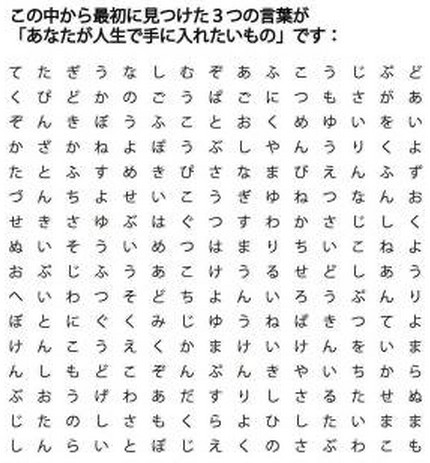 この中から最初に見つけた３つの言葉が
「あなたが人生で手に入れたいもの」です：
て た ぎ う な し む ぞ あ ふ こ う じ ぶ ど
く び ど か の ご う ぱ ご に つ も さ が あ
ぞ ん き ぼ う ふ こ と お く め ゆ い を い
か ざ か ね よ ぼ う ぶ し や ん う り く よ
た と ふ す め き び さ な ま び え ん ふ ず
づ ん ち よ せ い こ う ぎ ゆ ね つ な ん お
せ き さ ゆ ぶ は ぐ つ す わ か さ じ し く
ぬ い そ う い め つ は ま り ち い こ ね よ
お ぶ じ ふ う あ こ け う る せ ど し あ う
へ い わ つ そ ど ち よ ん い ろ う ぷ ん り
ぼ と に ぐ く み じ ゆ う ね ば き つ て よ
け ん こ う え く か ま け い け ん を い ま
ん し も ど こ ぞ ん ぷ ん き や い ち か ら
ぶ お う げ わ あ だ す り し さ る た せ ぬ
じ た の し さ も く ら よ ひ し た い ま ま
し ん ら い と ぼ じ え く の さ ぶ わ こ も